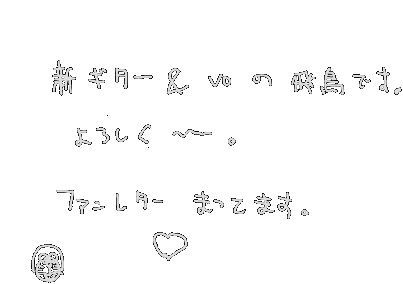 新ギター & voの飛鳥です。
よろしく〜ー。
ファンレターまってます。